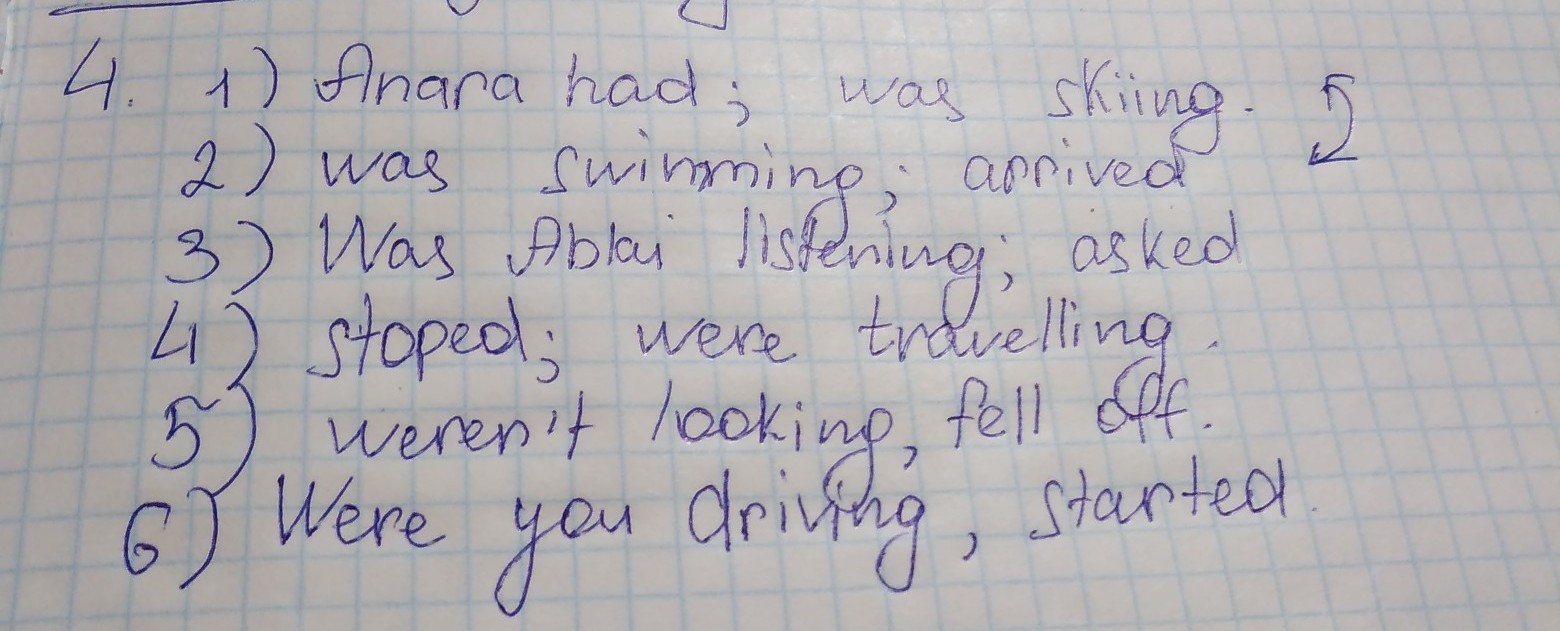 4. 1) Anara had; was skiing.
2) was swimming; arrived
3) Was Ablai listening; asked
4) stoped; were travelling.
5) weren't looking, fell off.
6) Were you driving, started.